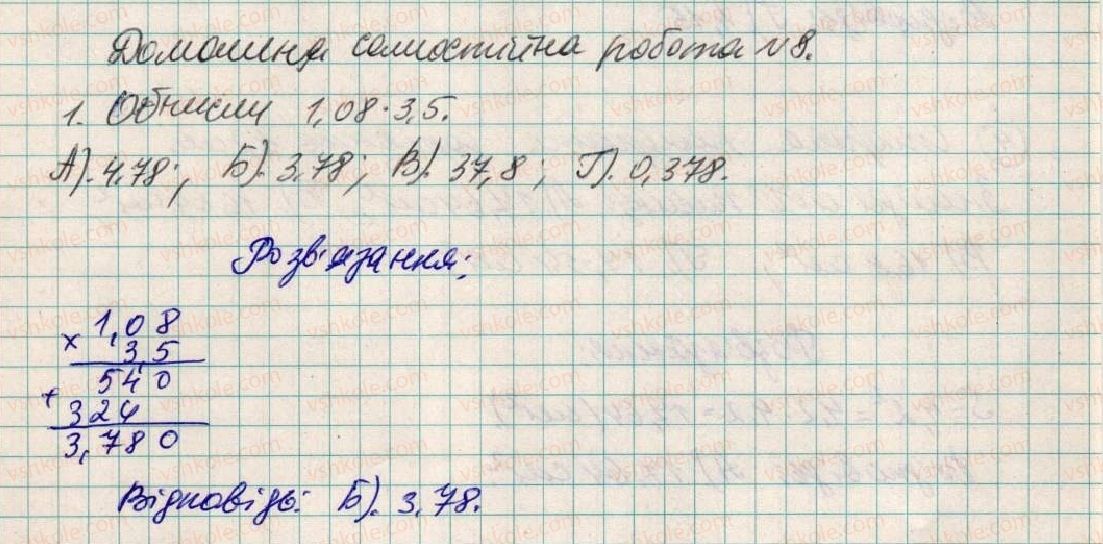 Домашня самостійна робота №8.
1. Обчисли 1,08·3,5.
А). 4,78; Б). 3,78; В). 37,8; Г). 0,378.
Розв'язання:
× 1,08
3,5
540
+ 324
3,780
Відповідь: Б). 3,78.